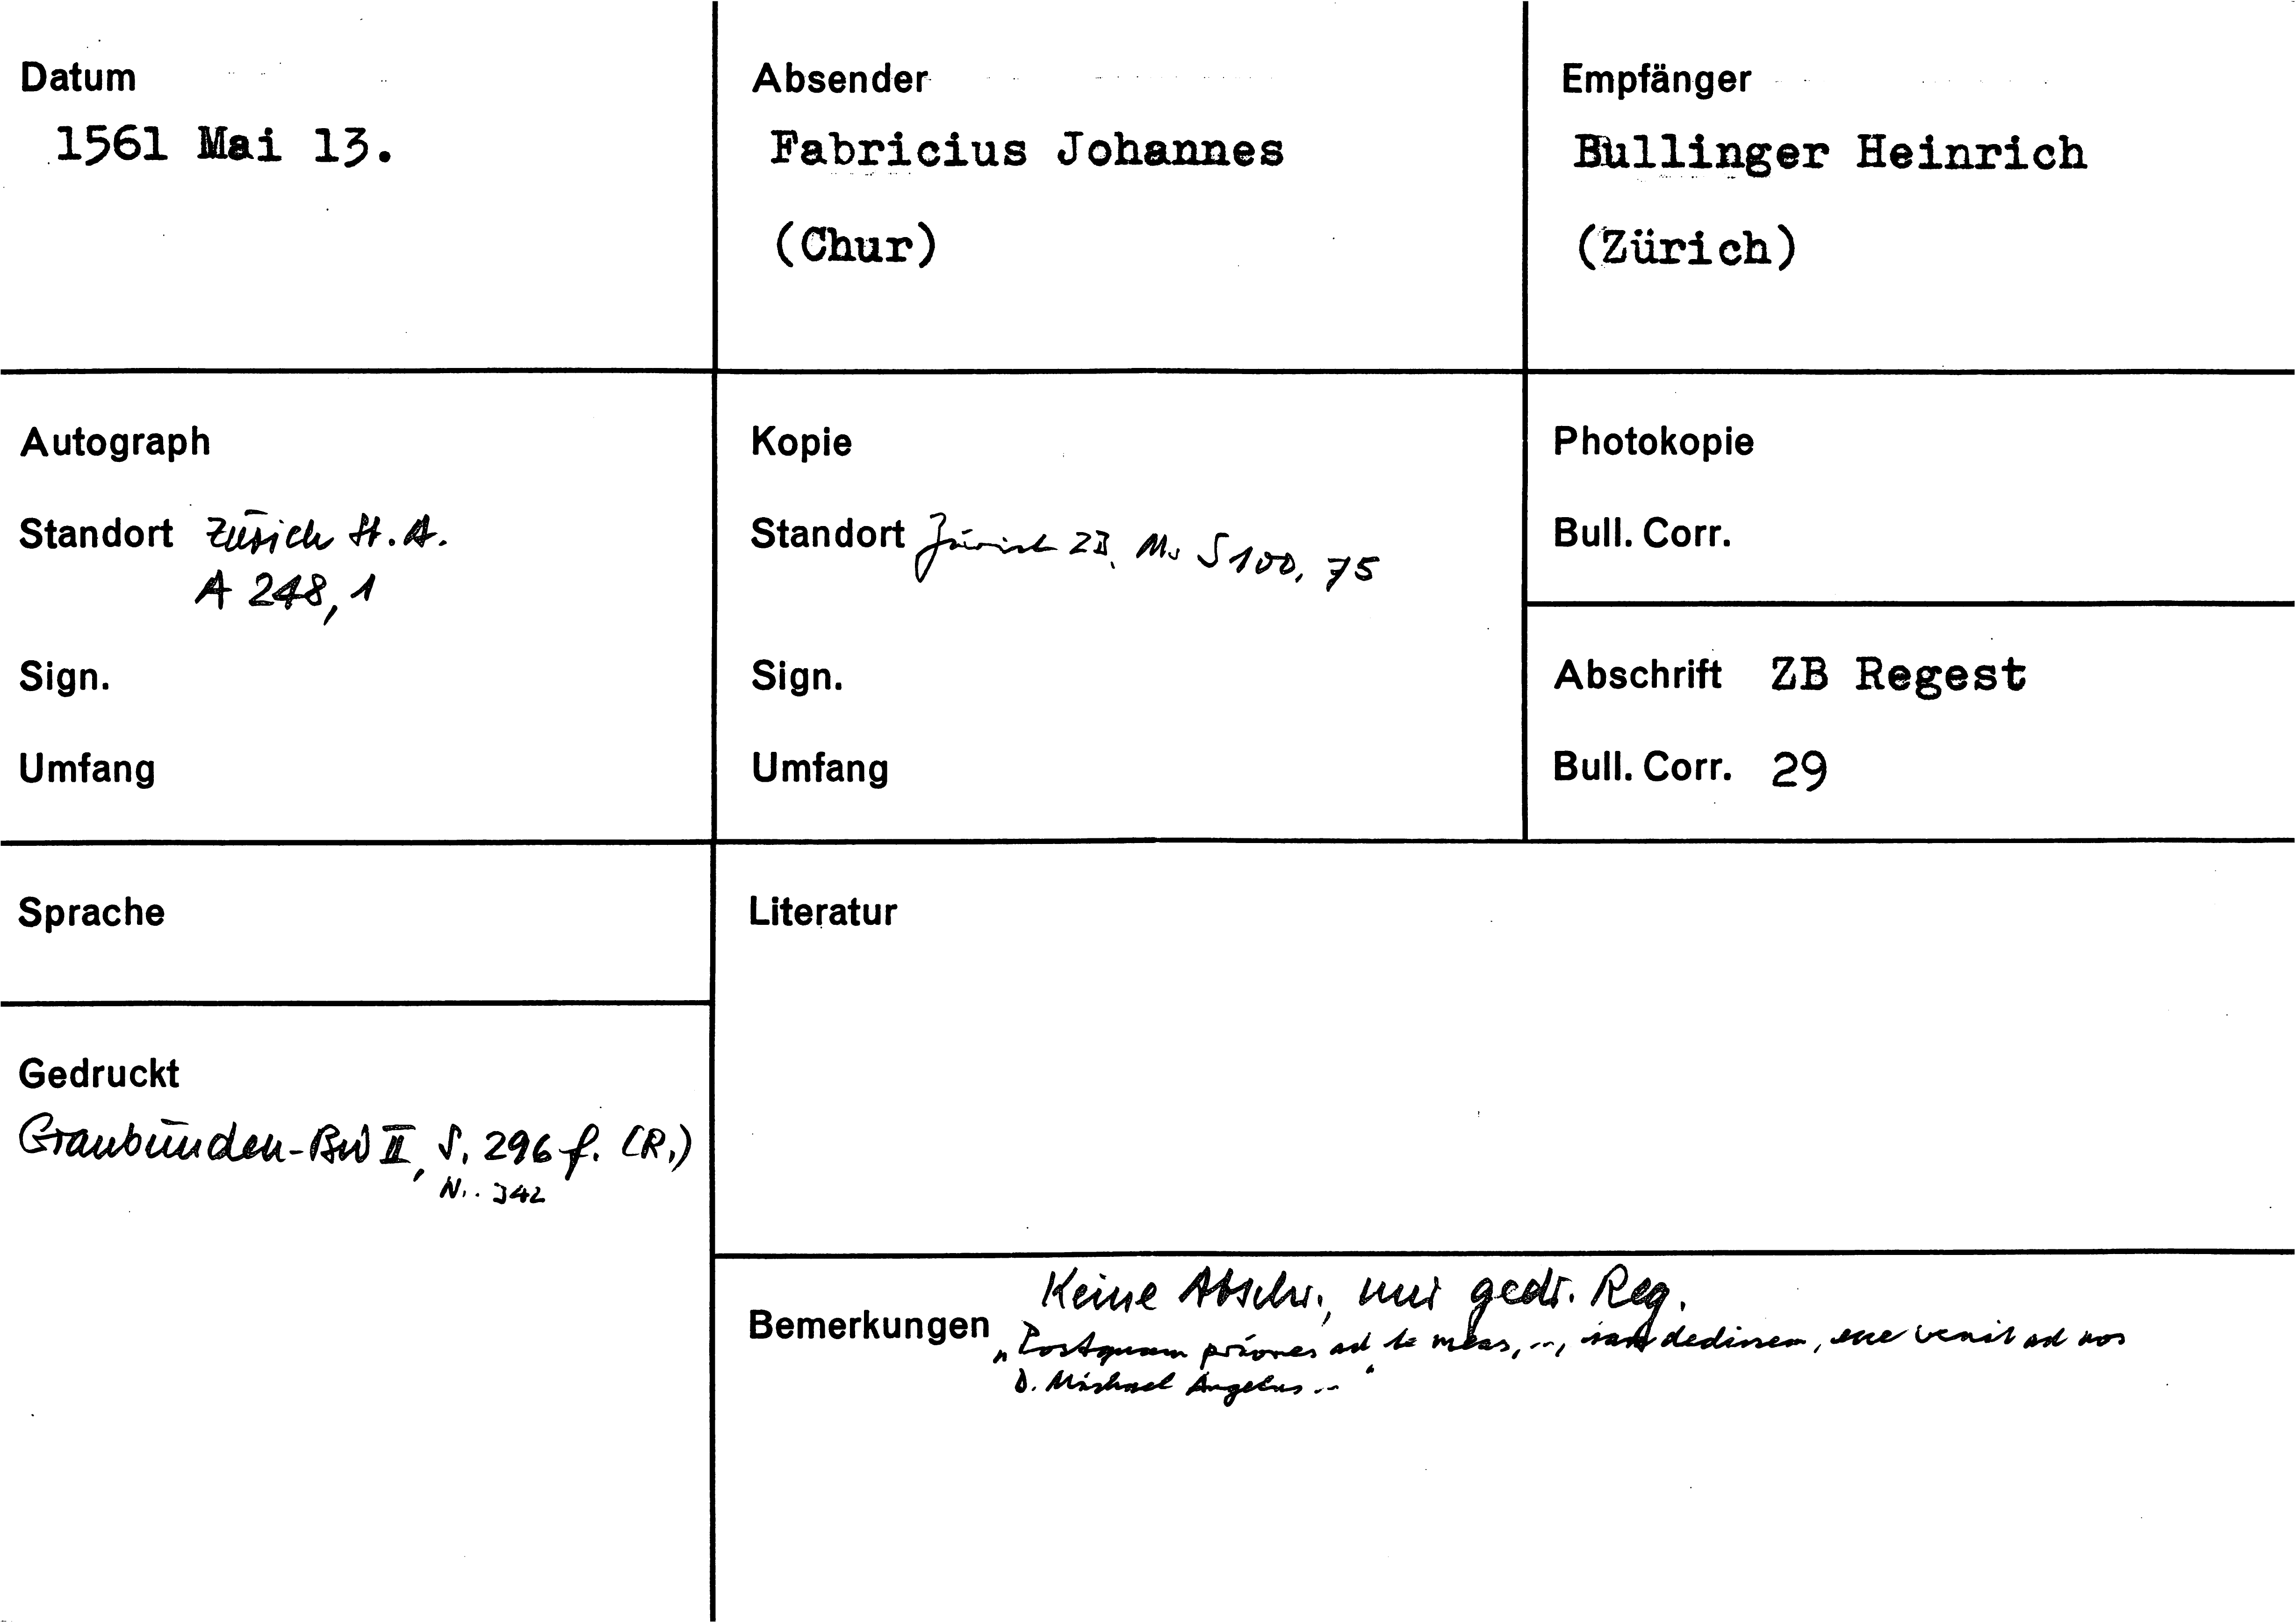 Datum
1561 Mai 13.
Absender
Fabricius Johannes
(Chur)
Empfänger
Bullinger Heinrich
(Zürich)
Autograph
Standort Zürich St.A.
A 248, 1
Sign.
Umfang
Kopie
Standort Zürich ZB, Ms S 100, 75
Sign.
Umfang
Photokopie
Bull. Corr.
Abschrift ZB Regest
Bull. Corr. 29
Sprache
Gedruckt
Graubünden-BW II, S. 296 f. (R.)
Nr. 342
Literatur
Bemerkungen Keine Abschr., nur gedr. Reg.
"Postquam priores ad te meas, .., iam dedissem, ecce venit ad nos
D. Michael Angelus .."